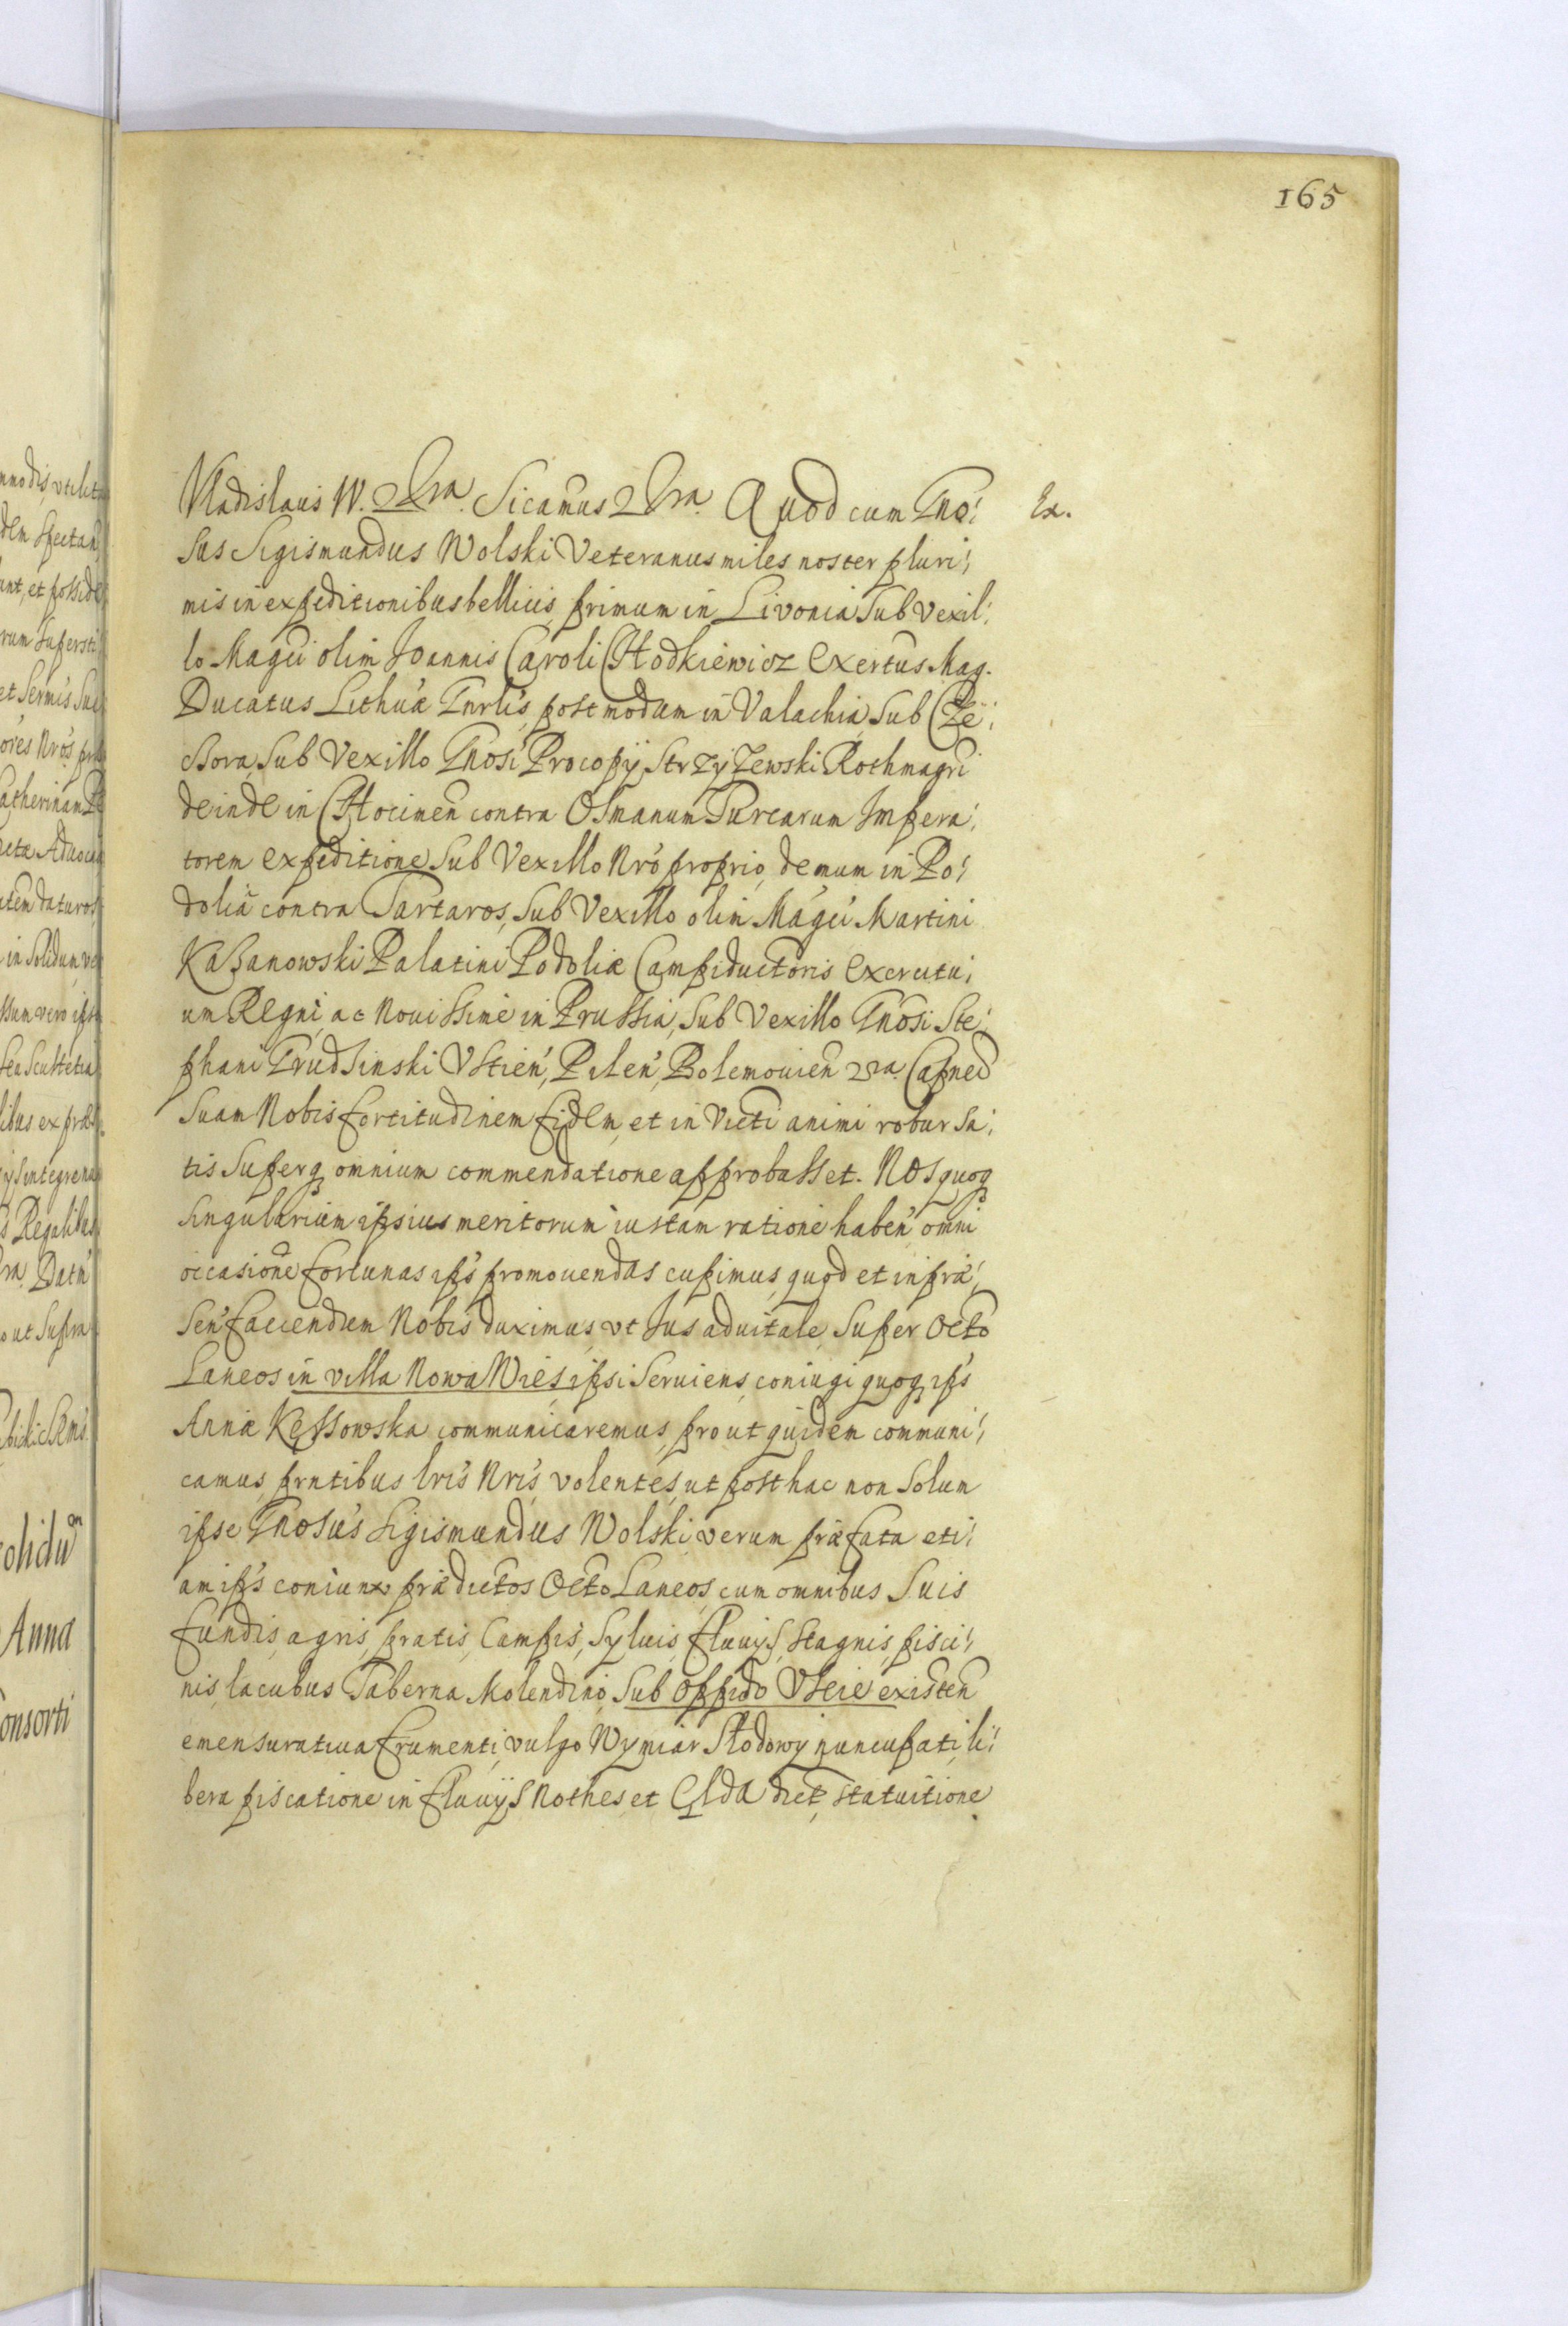 165
Vladislaus IV. &ra. Sicamus &ra. Quod cum Gno:
sus Sigismundus Wolski Veteranus miles noster pluri:
mis in expeditionibus bellicis, primum in Livonia Sub Vexil:
lo Magci olim Joannis Caroli CHodkiewicz Exertus Mag.
Ducatus Lithuæ Gnrlis, postmodum in Valachia, Sub CZe:
cßora, Sub Vexillo Gnosi Procopij StrzyZewski Rothmagri
deinde in CHocimen contra Osmanum Turcarum Impera:
torem expeditione Sub Vexillo Nro proprio, demum in Po:
dolia contra Tartaros, Sub Vexillo olim Magci Martini
Kaßanowski Palatini Podoliæ Campiductoris Exercitu:
um Regni, ac Nouissime in Prussia, Sub Vexillo Gnosi Ste:
phani Grudsinski Vstien, Pilen, Bolemouien &ra. Capnei
Suam Nobis fortitudinem fidem, et in Victi animi robur Sa:
tis Superq omnium commendatione approbasset. Nos quoq
Singularium ipsius meritorum iustam ratione haben omni
occasione fortunas ips promouendas cupimus, quod et in præ:
sen faciendum Nobis duximus, vt Jus aduitale, Super Octo
Laneos in villa Nowa Wies, ipsi Seruiens, coniugi quoq ips
Annæ Kęssowska communicaremus, prout quidem communi:
camus, prntibus lris Nris, volentes, ut posthac non Solum
ipse Gnosus Sigismundus Wolski verum præfata eti:
am ips coniunx prædictos Octo Laneos, cum omnibus Suis
fundis, agris, pratis, Campis, Syluis, fluuijs, Stagnis, pisci:
nis, lacubus Taberna Molendino, Sub Oppido Vscie existen
emensuratiua frumenti, vulgo Wymiar Słodowy nuncupati, li:
bera piscatione in fluuijs Nothes et Glda dict, statuitione
Ex.